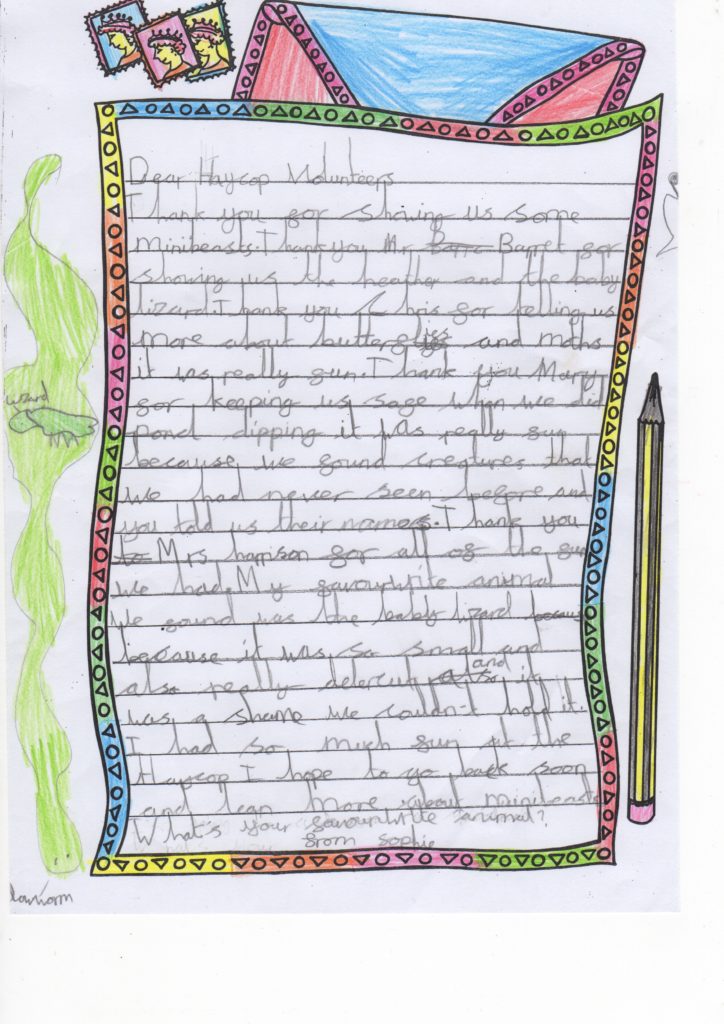 Dear Haycop Volunteers
Thank you for showing us some
minibeasts. Thank you Mr Barret for
showing us the heather and the baby
lizard. Thank you Chris for telling us
more about butterflies and moths
it was really fun. Thank you Mary
for keeping us safe when we did
pond dipping it was really fun
because we found creatures that
we had never seen before and
you told us their names. Thank you
Mrs harrison for all of the fun
we had. My favourwrite animal
We found was the baby lizard
because it was so small and
also really and it
was a shame we couldn't hold it.
I had so much fun at the
Haycop I hope to go back soon
and lean more about minibeasts
What's your favourwrite animal?
from Sophie
lizard